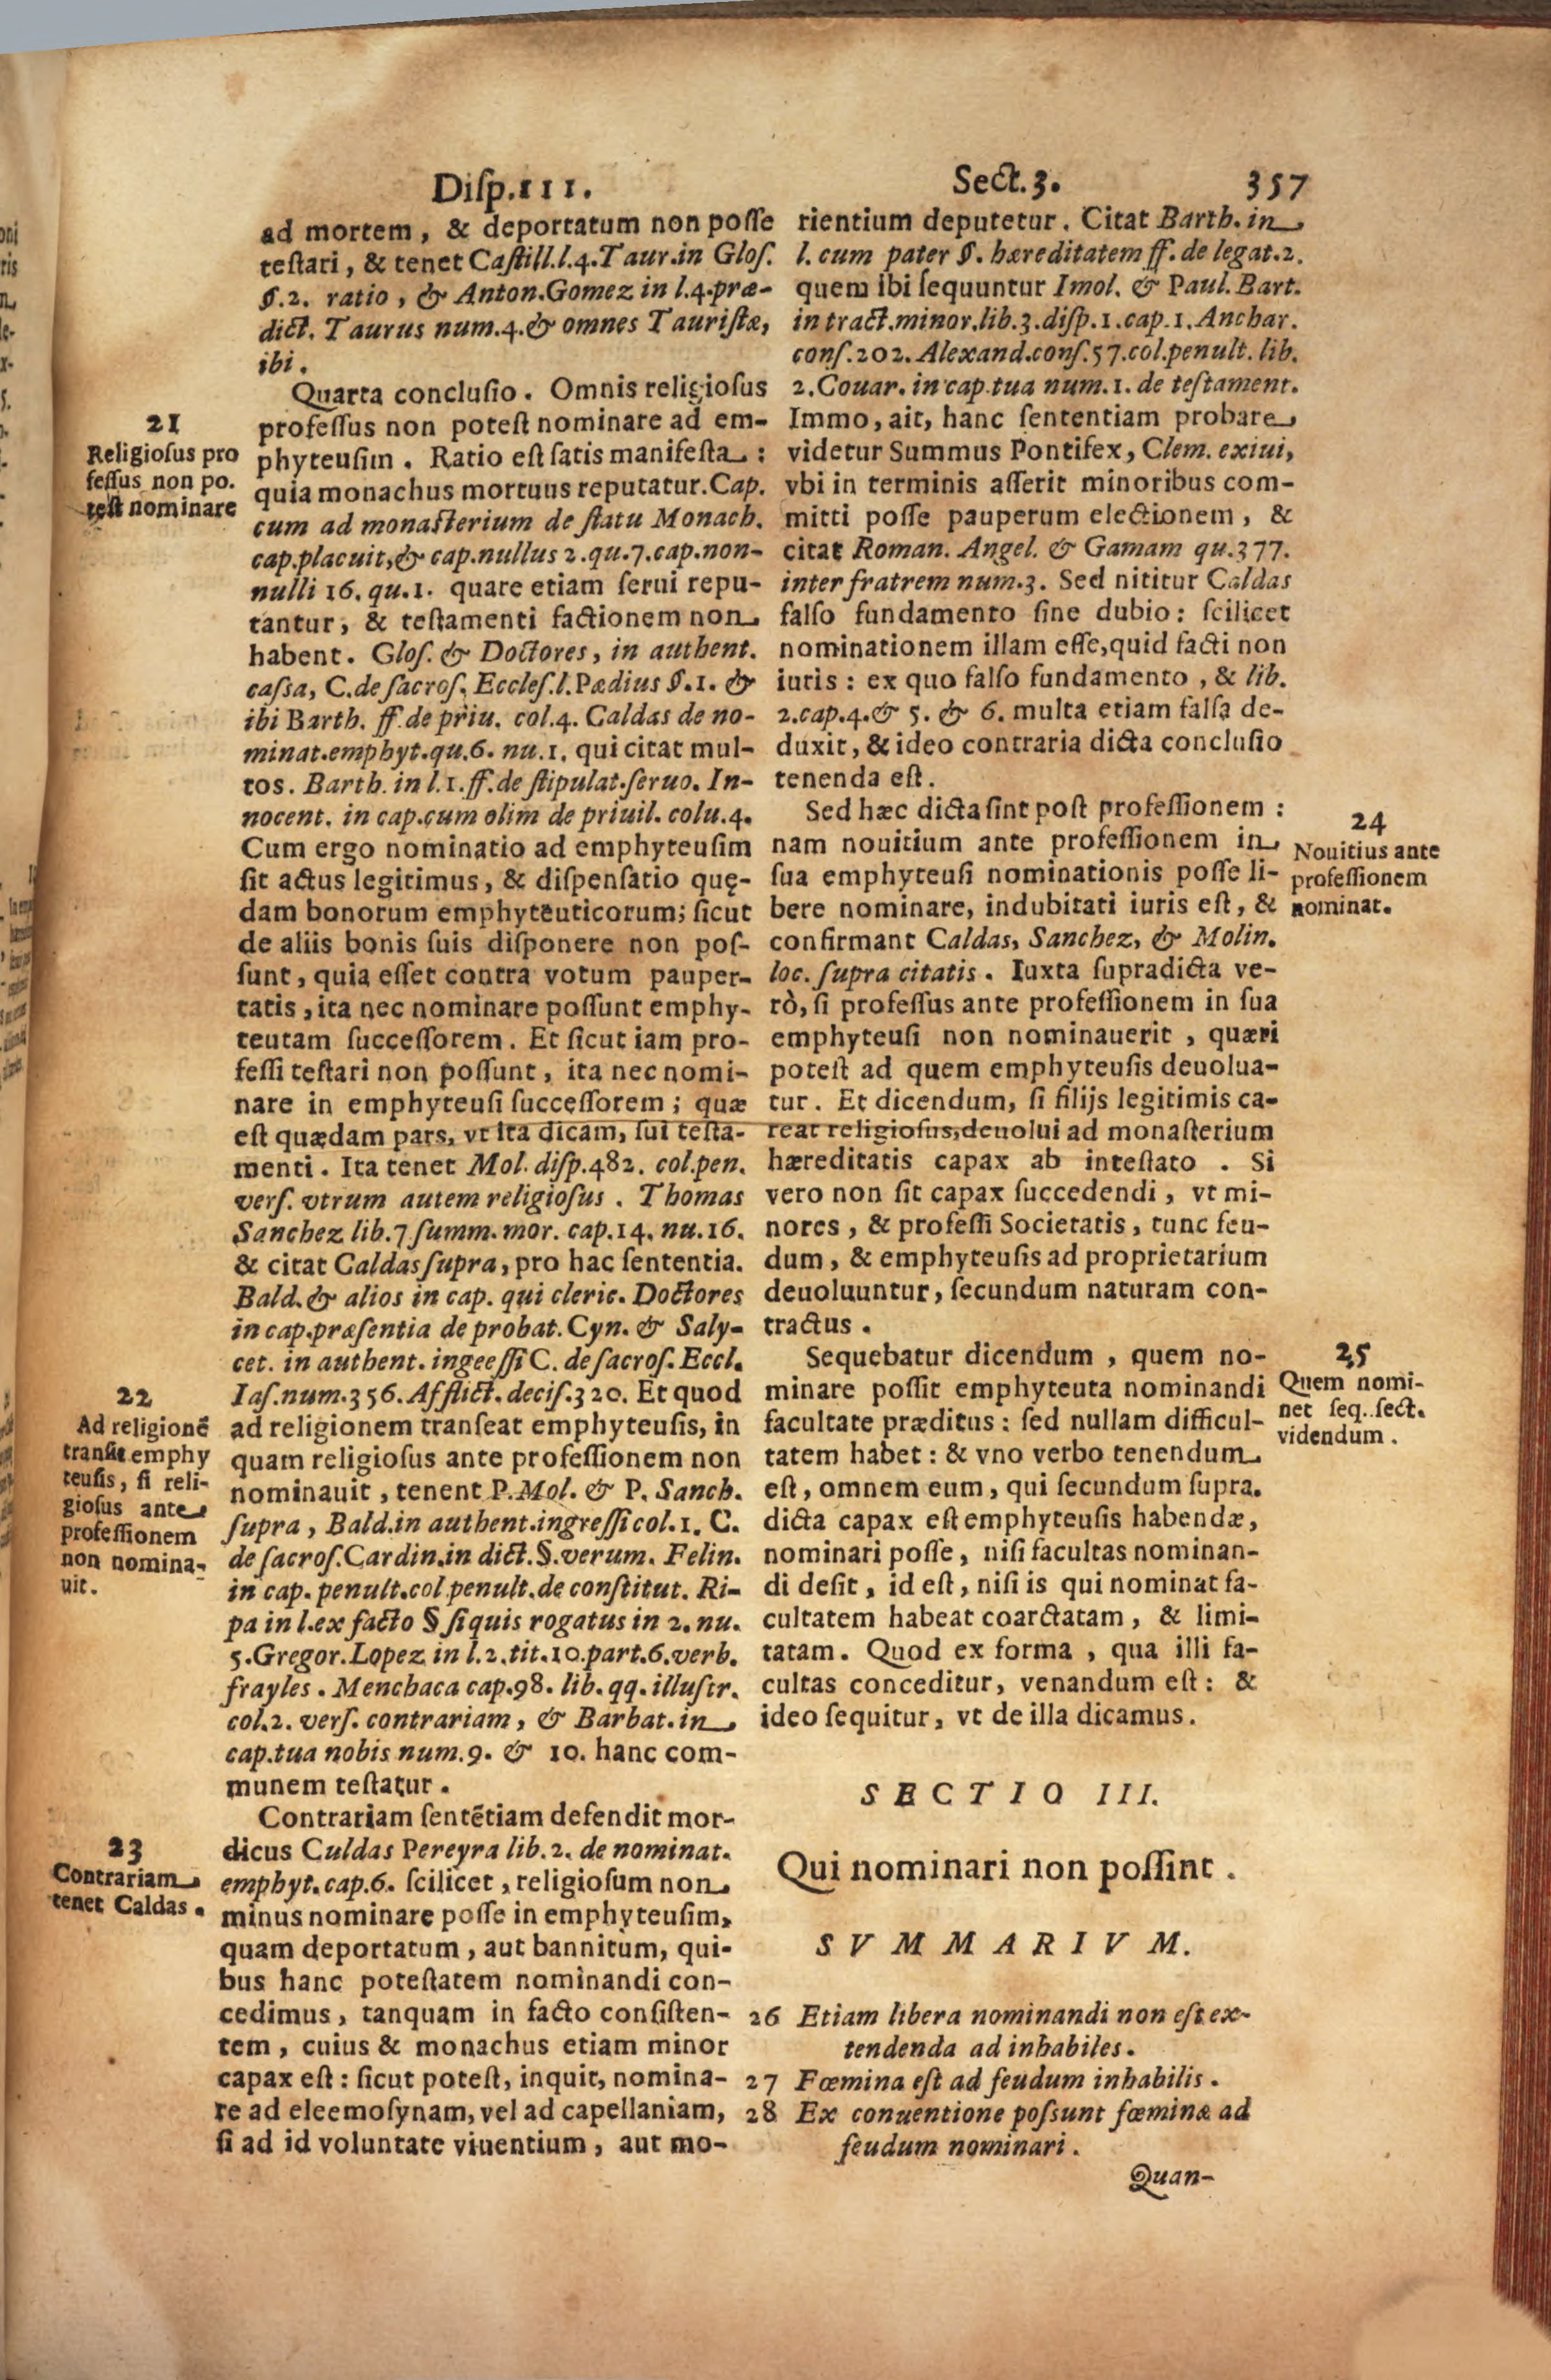 Disp.III.
Sect.3.
357
ad mortem, & deportatum non posse
testari, & tenet Castill.l.4.Taur.in Glos.
§.2. ratio, & Anton.Gomez in l.4.præ-
dict. Taurus num.4.& omnes Tauristæ,
ibi.
Quarta conclusio. Omnis religiosus
professus non potest nominare ad em-
phyteusim. Ratio est satis manifesta:
quia monachus mortuus reputatur. Cap.
cum ad monasterium de statu Monach.
cap.placuit,& cap.nullus 2.qu.7.cap.non-
nulli 16.qu.1. quare etiam serui repu-
tantur, & testamenti factionem non
habent. Glos. & Doctores, in authent.
cassa, C.de sacros. Eccles.l.Pædius §.1. &
ibi Barth. ff.de priu. col.4. Caldas de no-
minat.emphyt.qu.6. nu.1. qui citat mul-
tos. Barth. in l.1.ff.de stipulat.seruo. In-
nocent. in cap.cum olim de priuil. colu.4.
Cum ergo nominatio ad emphyteusim
sit actus legitimus, & dispensatio quę-
dam bonorum emphyteuticorum; sicut
de aliis bonis suis disponere non pos-
sunt, quia esset contra votum pauper-
tatis, ita nec nominare possunt emphy-
teutam successorem. Et sicut iam pro-
fessi testari non possunt, ita nec nomi-
nare in emphyteusi successorem; quæ
est quædam pars, vt ita dicam, sui testa-
menti. Ita tenet Mol. disp.482. col.pen.
vers. vtrum autem religiosus. Thomas
Sanchez lib.7 summ. mor. cap.14. nu.16.
& citat Caldas supra, pro hac sententia.
Bald.& alios in cap. qui cleric. Doctores
in cap.præsentia de probat. Cyn. & Saly-
cet. in authent. ingeessi C. de sacros. Eccl.
Ias.num.356. Afflict. decis.320. Et quod
ad religionem transeat emphyteusis, in
quam religiosus ante professionem non
nominauit, tenent P.Mol. & P. Sanch.
supra, Bald.in authent.ingressi col.1. C.
de sacros.Cardin.in dict.§.verum. Felin.
in cap. penult.col penult.de constitut. Ri-
pa in l.ex facto § siquis rogatus in 2. nu.
5.Gregor.Lopez in l.2.tit.10.part.6.verb.
frayles. Menchaca cap.98. lib. qq. illustr.
col.2. vers. contrariam, & Barbat.in
cap.tua nobis num.9. & 10. hanc com-
munem testatur.
Contrariam sentẽtiam defendit mor-
dicus Culdas Pereyra lib.2. de nominat.
emphyt.cap.6. scilicet, religiosum non
minus nominare posse in emphyteusim,
quam deportatum, aut bannitum, qui-
bus hanc potestatem nominandi con-
cedimus, tanquam in facto consisten-
tem, cuius & monachus etiam minor
capax est: sicut potest, inquit, nomina-
re ad eleemosynam, vel ad capellaniam,
si ad id voluntate viuentium, aut mo-
21
Religiosus pro
fessus non po.
test nominare
22
Ad religionẽ
transit emphy
teusis, si reli-
giosus ante
professionem
non nomina-
uit.
23
Contrariam
tenet Caldas.
rientium deputetur. Citat Barth. in
l. cum pater §. hæreditatem ff. de legat.2.
quem ibi sequuntur Imol. & Paul. Bart.
in tract.minor.lib.3.disp.1.cap.1.Anchar.
cons.202. Alexand.cons.57.col.penult. lib.
2.Couar. in cap.tua num.1. de testament.
Immo, ait, hanc sententiam probare
videtur Summus Pontifex, Clem. exiui,
vbi in terminis asserit minoribus com-
mitti posse pauperum electionem, &
citat Roman. Angel. & Gamam qu.377.
inter fratrem num.3. Sed nititur Caldas
falso fundamento sine dubio: scilicet
nominationem illam esse, quid facti non
iuris: ex quo falso fundamento, & lib.
2.cap.4.& 5. & 6. multa etiam falsa de-
duxit, & ideo contraria dicta conclusio
tenenda est.
Sed hæc dicta sint post professionem:
nam nouitium ante professionem in
sua emphyteusi nominationis posse li-
bere nominare, indubitati iuris est, &
confirmant Caldas, Sanchez, & Molin.
loc. supra citatis. Iuxta supradicta ve-
rò, si professus ante professionem in sua
emphyteusi non nominauerit, quæri
potest ad quem emphyteusis deuolua-
tur. Et dicendum, si filijs legitimis ca-
reat religiosus, deuolui ad monasterium
hæreditatis capax ab intestato. Si
vero non sit capax succedendi, vt mi-
nores, & professi Societatis, tunc feu-
dum, & emphyteusis ad proprietarium
deuoluuntur, secundum naturam con-
tractus.
Sequebatur dicendum, quem no-
minare possit emphyteuta nominandi
facultate præditus: sed nullam difficul-
tatem habet: & vno verbo tenendum
est, omnem eum, qui secundum supra.
dicta capax est emphyteusis habendæ,
nominari posse, nisi facultas nominan-
di desit, id est, nisi is qui nominat fa-
cultatem habeat coarctatam, & limi-
tatam. Quod ex forma, qua illi fa-
cultas conceditur, venandum est: &
ideo sequitur, vt de illa dicamus.
24
Nouitius ante
professionem
nominat.
25
Quem nomi-
net seq. sect.
videndum.
SECTIO III.
Qui nominari non possint.
SVMMARIVM.
26 Etiam libera nominandi non est ex-
tendenda ad inhabiles.
27 Fœmina est ad feudum inhabilis.
28 Ex conuentione possunt fœminæ ad
feudum nominari.
Quan-